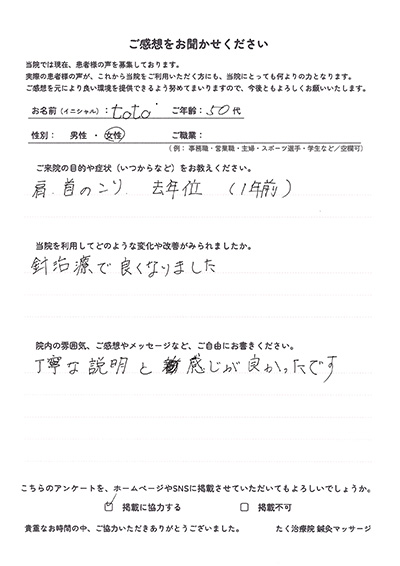 ご感想をお聞かせください
当院では現在、患者様の声を募集しております。
実際の患者様の声が、これから当院をご利用いただく方にも、当院にとっても何よりの力となります。
ご感想を元により良い環境を提供できるよう努めてまいりますので、今後ともよろしくお願いいたします。
お名前(イニシャル): toto ご年齢: 50 代
性別: 男性 ・ 女性 ご職業:
(例: 事務職・営業職・主婦・スポーツ選手・学生など/空欄可)
ご来院の目的や症状(いつからなど)をお教えください。
肩、首のこり、 去年位 (1年前)
当院を利用してどのような変化や改善がみられましたか。
針治療で良くなりました
院内の雰囲気、ご感想やメッセージなど、ご自由にお書きください。
丁寧な説明と 感じが良かったです
こちらのアンケートを、ホームページやSNSに掲載させていただいてもよろしいでしょうか。
☑ 掲載に協力する □ 掲載不可
貴重なお時間の中、ご協力いただきありがとうございました。 たく治療院 鍼灸マッサージ